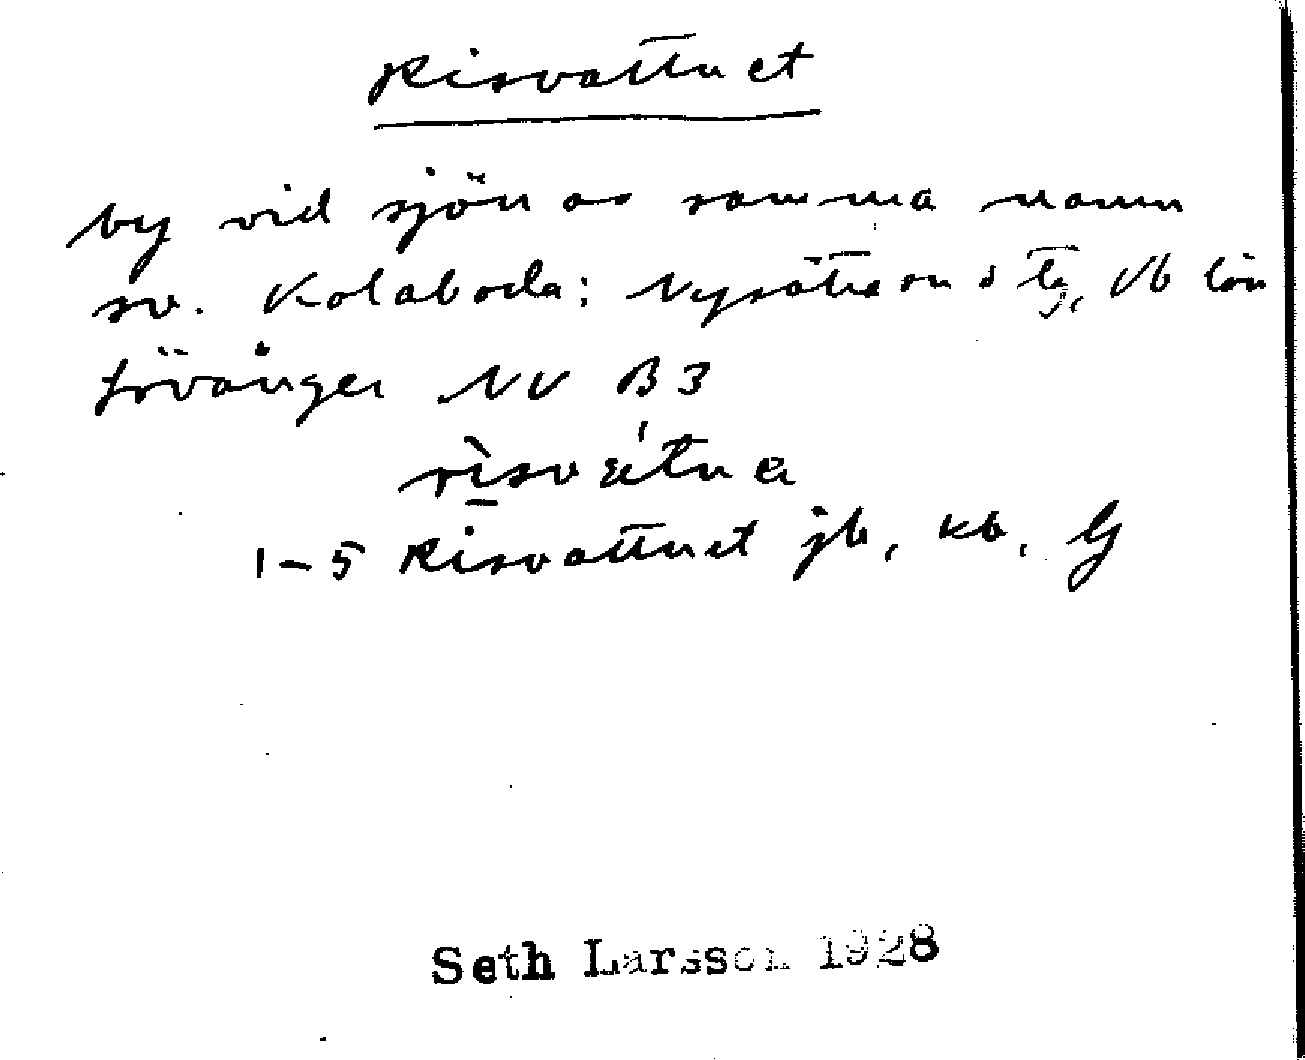 Risvattnet
by vid sjön av samma namn
sv. Kolaboda; Nysätra sn o tg, Vb län
Lövånger NV B3
rìsvátne
1-5 Risvattnet jb, kb, G
Seth Larsson 1928